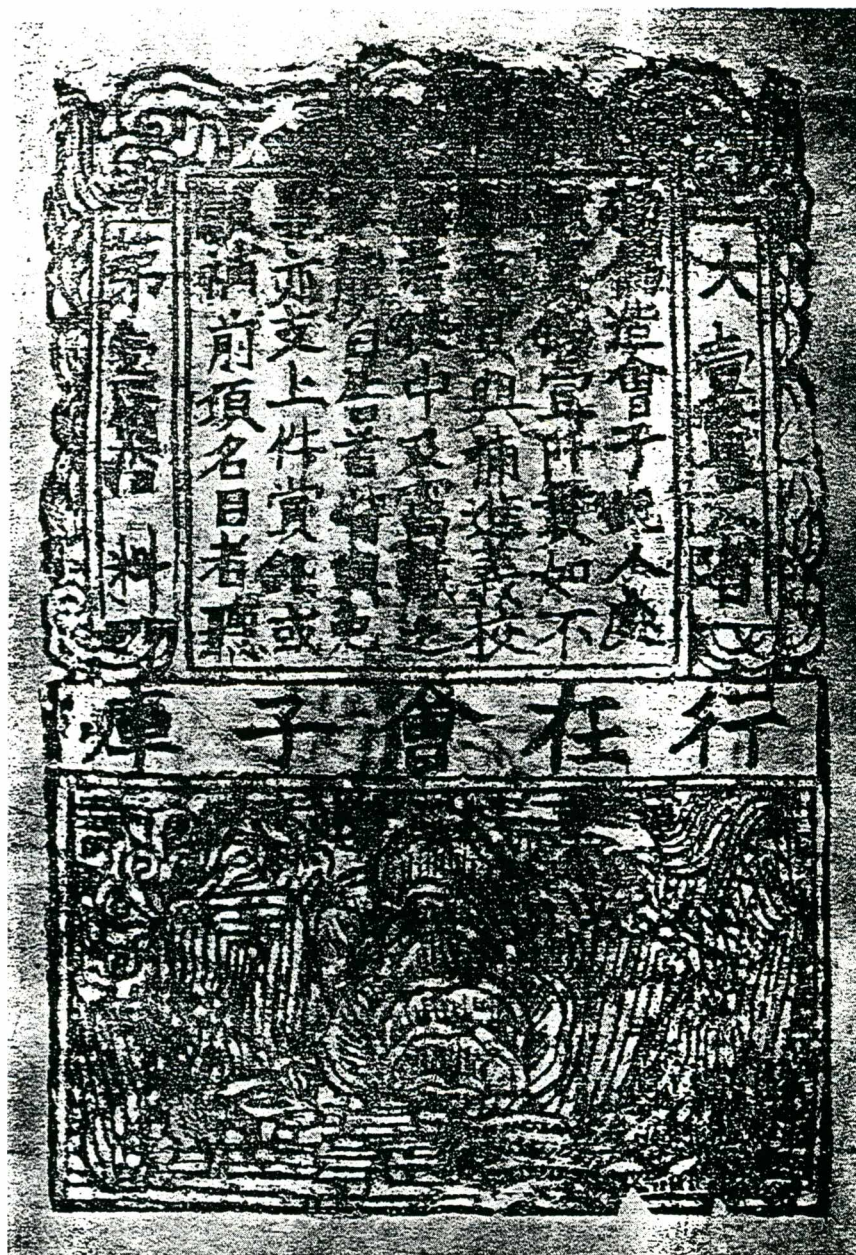 大壹貫文省
偽造會子犯人處
賞錢壹阡貫如不
賞與補進義校
若徒中及窩藏之
能自告首特與免
罪亦支上件賞錢或
願補前項名目者聽
第壹佰拾料
行在會子庫